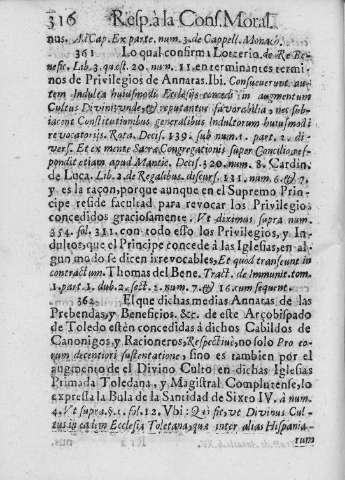 316 Resp. à la Cons. Moral
nus. Ad Cap. Ex parte. num. 3. de Cappell. Monach.
361 Lo qual confirma Lotterio. de Re Be-
nefic. Lib. 3. quæst. 20. num. 11. en terminantes termi-
nos de Privilegios de Annatas. Ibi. Consueverunt au-
tem Indulta huiusmodi Ecclesijs concedi in augmentum
Cultus Divini, unde, & reputantur favorabilia, nec sub-
iacent Constitutionibus generalibus Indultorum huiusmodi
revocatorijs. Rota. Decis. 139. sub num. 1. part. 2. di-
vers. Et ex mente Sacræ Congregationis super Concilio, res-
pondit etiam apud Mantic. Decis. 320. num. 8. Cardin.
de Luca. Lib. 2. de Regalibus. discurs. 131. num. 6. & 7.
y es la raçon, porque aunque en el Supremo Prin-
cipe reside facultad para revocar los Privilegios
concedidos graciosamente. Vt diximus supra num.
354. fol. 311. con todo esso los Privilegios, y In-
dultos, que el Principe concede à las Iglesias, en al-
gun modo se dicen irrevocables, Et quod transeunt in
contractum. Thomas del Bene. Tract. de Immunit. tom.
1. part. 1. dub. 2. sect. 2. num. 7. & 16. cum sequent.
362 El que dichas medias Annatas de las
Prebendas, y Beneficios. &c. de este Arçobispado
de Toledo estèn concedidas à dichos Cabildos de
Canonigos, y Racioneros, Respectivè, no solo Pro eo-
rum decentiori sustentatione, sino es tambien por el
augmento de el Divino Culto en dichas Iglesias
Primada Toledana, y Magistral Complutense, lo
expressa la Bula de la Santidad de Sixto IV. à num.
4. Vt supra. §. 1. fol. 12. Vbi: Quòd sit, ve Divinus Cul-
tus in eadem Ecclesia Toletana, quæ inter alias Hispania-
rum